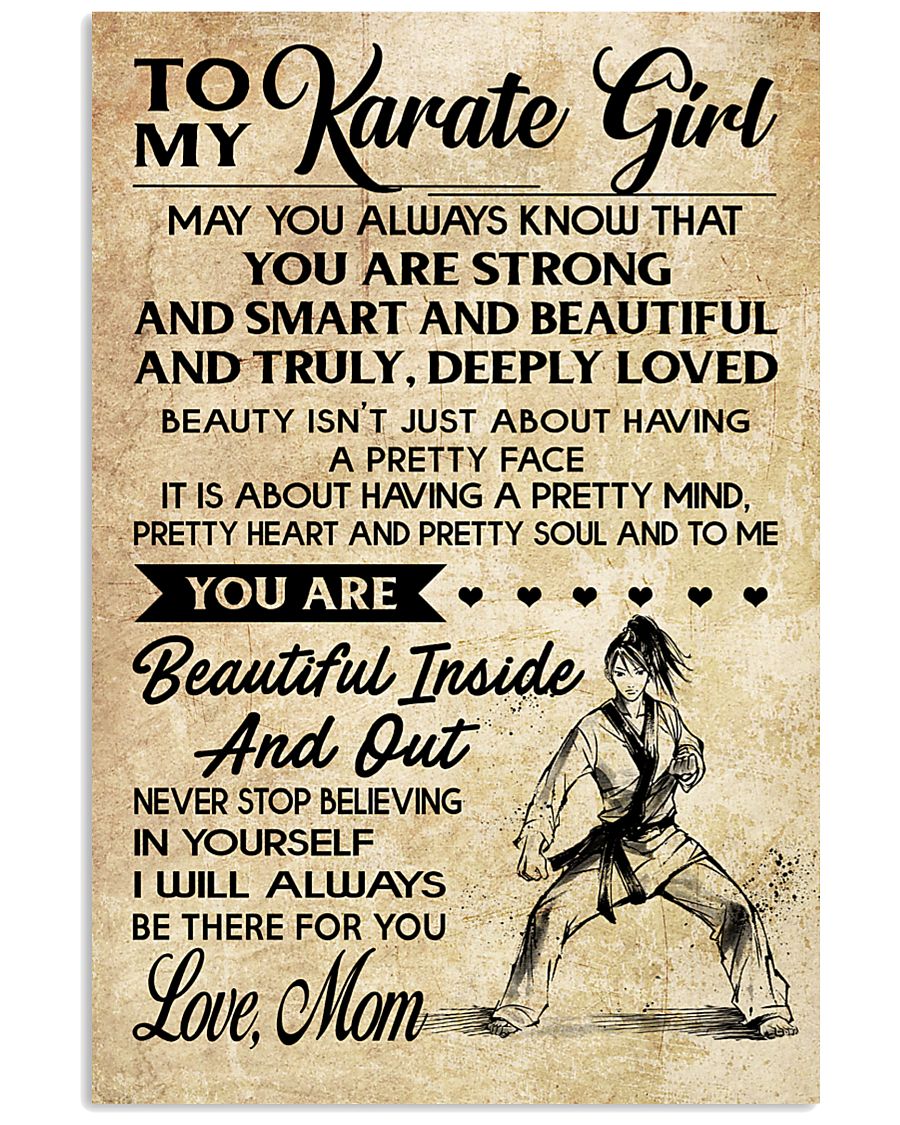 TO MY Karate Girl
MAY YOU ALWAYS KNOW THAT
YOU ARE STRONG
AND SMART AND BEAUTIFUL
AND TRULY, DEEPLY LOVED
BEAUTY ISN'T JUST ABOUT HAVING
A PRETTY FACE
IT IS ABOUT HAVING A PRETTY MIND,
PRETTY HEART AND PRETTY SOUL AND TO ME
YOU ARE
Beautiful Inside
And Out
NEVER STOP BELIEVING
IN YOURSELF
I WILL ALWAYS
BE THERE FOR YOU
Love, Mom